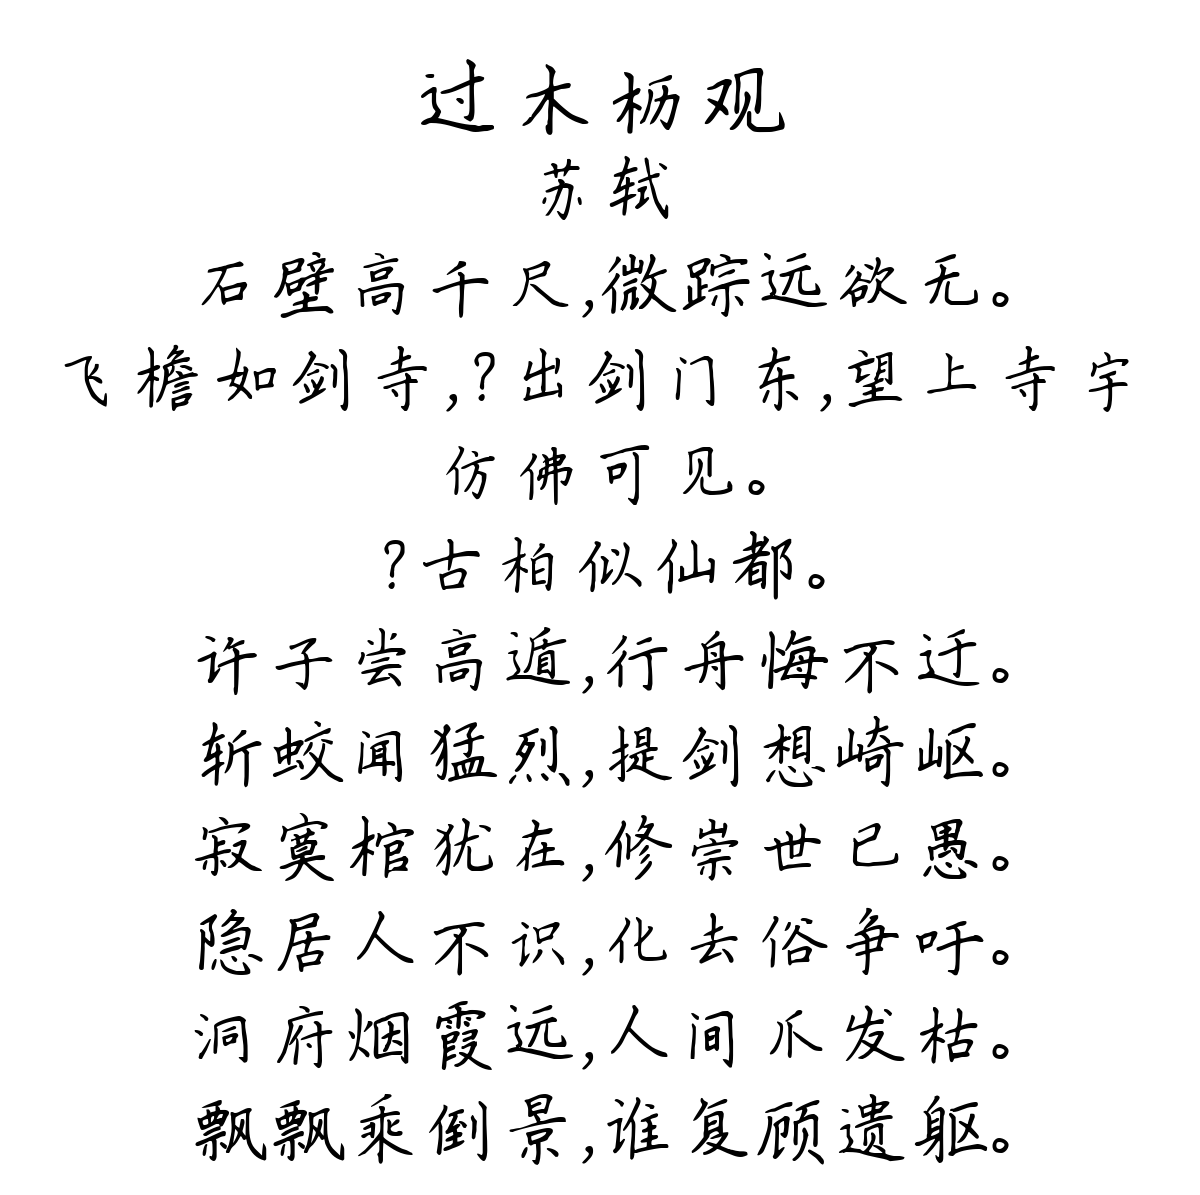 过木枥观
苏轼
石壁高千尺,微踪远欲无。
飞檐如剑寺,?出剑门东,望上寺宇
仿佛可见。
?古柏似仙都。
许子尝高遁,行舟悔不迂。
斩蛟闻猛烈,提剑想崎岖。
寂寞棺犹在,修崇世已愚。
隐居人不识,化去俗争吁。
洞府烟霞远,人间爪发枯。
飘飘乘倒景,谁复顾遗躯。